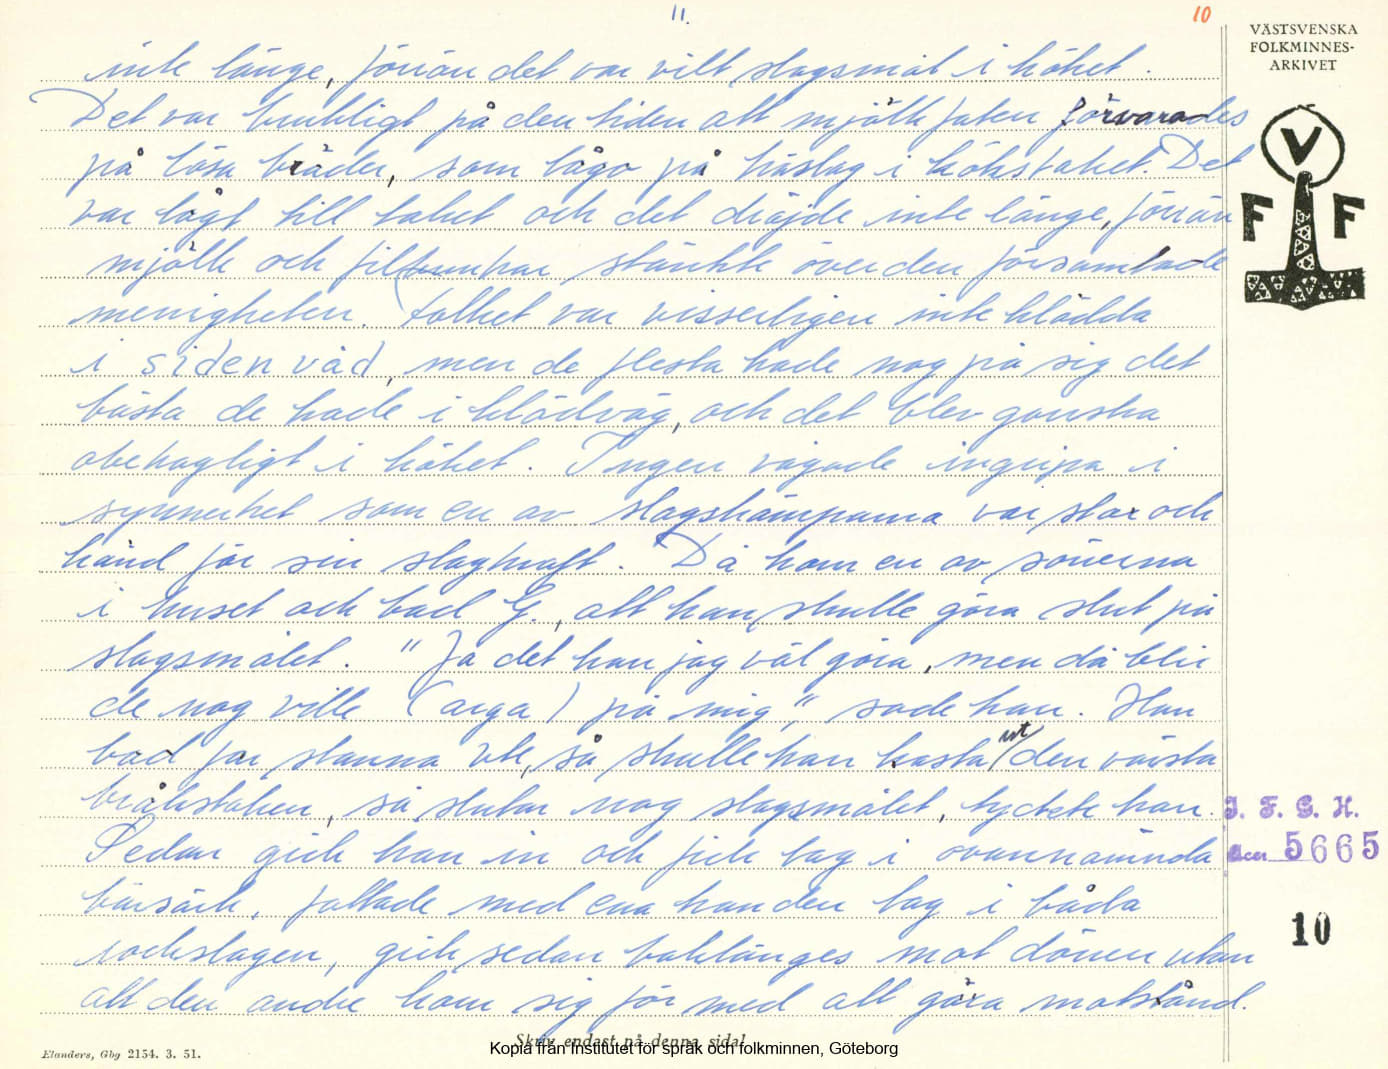 11.
10
VÄSTSVENSKA
FOLKMINNES-
ARKIVET
inte länge, förrän det var vilt slagsmål i köket.
Det var brukligt på den tiden att mjölkfaten förvarades
på lösa bräder, som lågo på hislag i kökstaket. Det
var lågt till taket och det dröjde inte länge, förrän
mjölk och filbunkar stänkte över den församlade
menigheten. Folket var visserligen inte klädda
i sidenväd, men de flesta hade nog på sig det
bästa de hade i klädväg, och det blev ganska
obehagligt i köket. Ingen vågade ingripa i
synnerhet som en av slagskämparna var stor och
känd för sin slagkraft. Då kom en av sönerna
i huset och bad G., att han skulle göra slut på
slagsmålet. "Ja det kan jag väl göra, men då blir
de nog ville (arga) på mig," sade han. Han
bad far stanna ute, så skulle han kasta ut den värsta
bråkstaken, så slutar nog slagsmålet, tyckte han.
Sedan gick han in och fick tag i ovannämnda
bärsärk, fattade med ena handen tag i båda
rockslagen, gick sedan baklänges mot dörren utan
att den andre kom sig för med att göra motstånd.
V
F F
I. F. G. H.
acc. 5665
10
Skriv endast på denna sida!
Kopia från Institutet för språk och folkminnen, Göteborg
Elanders, Gbg 2154. 3. 51.